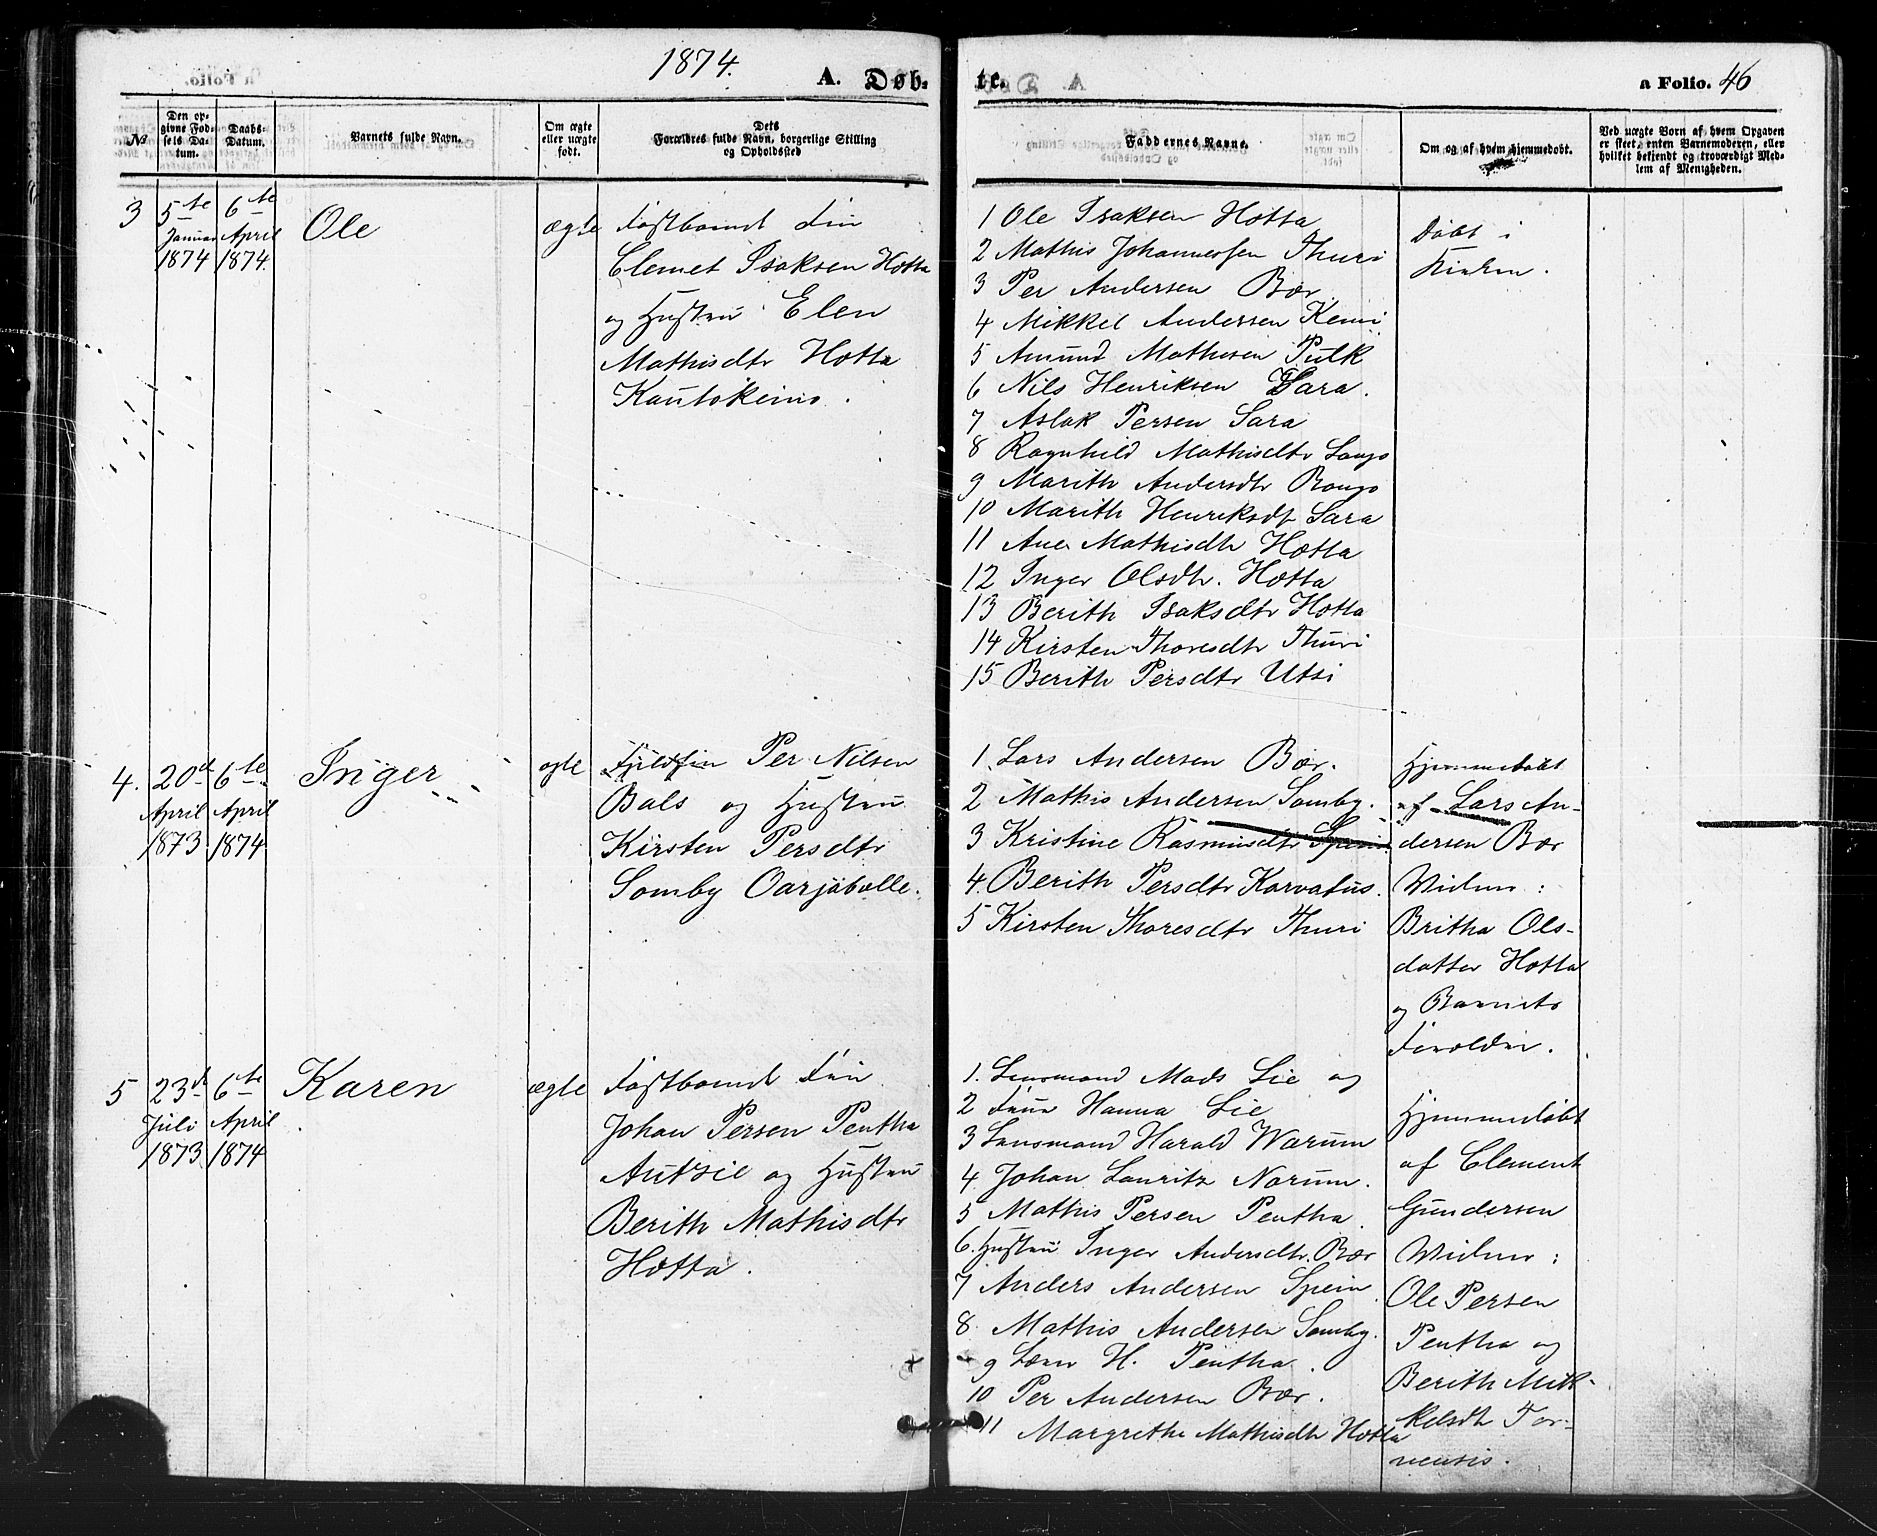 1874.
A. Døb-
te.
a Folio. 46
№
Den op-
givne Fød-
sels Da-
tum.
Daabs-
Datum.
Barnets fulde Navn.
Om ægte
eller uægte
født.
Dets
Forældres fulde Navn, borgerlige Stilling
og Opholdssted
Faddernes Navne.
Om og af hvem hjemmedøbt.
Ved uægte Børn af hvem Opgaven
er skeet, enten Barnemoderen, eller
hvilket bekjendt og troværdigt Med-
lem af Menigheden.
3
5te
Januar
1874
6te
April
1874.
Ole
ægte
Fastboende Fin
Clemet Isaksen Hætta
og Hustru Elen
Mathisdtr Hætta
Kautokeino.
1 Ole Isaksen Hætta
2 Mathis Johannessen Thuri
3 Per Andersen Bær
4 Mikkel Andersen Kemi
5 Amund Mathesen Pulk
6 Nils Henriksen Sara.
7 Aslak Persen Sara
8 Ragnhild Mathisdtr
9 Marith Andersdtr Bongo
10 Marith Henriksdt Sara
11 Ane Mathisdtr Hætta
12 Inger Olsdtr. Hætta
13 Berith Isaksdtr Hætta
14 Kirsten Thoresdtr Thuri
15 Berith Persdtr Utsi
Døbt i
Kirken.
4.
20d
April
1873
6te
April
1874
Inger
ægte
Fjeldfin Per Nilsen
Bals og Hustru
Kirsten Persdtr
Somby Oarjabælle.
1. Lars Andersen Bær.
2 Mathis Andersen Somby.
3 Kristine Rasmusdtr Spein
4. Berith Persdtr Karvatus.
5 Kirsten Thoresdtr Thuri
Hjemmedøbt
af Lars An-
dersen Bær
Vidner:
Britha Ols-
datter Hætta
og Barnets
Forældre.
5
23d
Juli
1873
6te
April
1874
Karen
ægte
Fastboende Fin
Johan Persen Pentha
Autzie og Hustru
Berith Mathisdtr
Hætta.
1. Lensmand Mads Lie og
2 Frue Hanna Lie
3 Lensmand Harald Warum
4. Johan Lauritz Norum.
5 Mathis Persen Pentha.
6. Hustru Inger Andersdtr. Bær
7 Anders Andersen Spein
8 Mathis Andersen Somby.
9 H. Pentha.
10 Per Andersen Bær.
11 Margrethe Mathisdtr Hætta
Hjemmedøbt
af Clement
Gundersen
Vidner:
Ole Persen
Pentha og
Berith Mik-
kelsdtr Tor-
nensis.